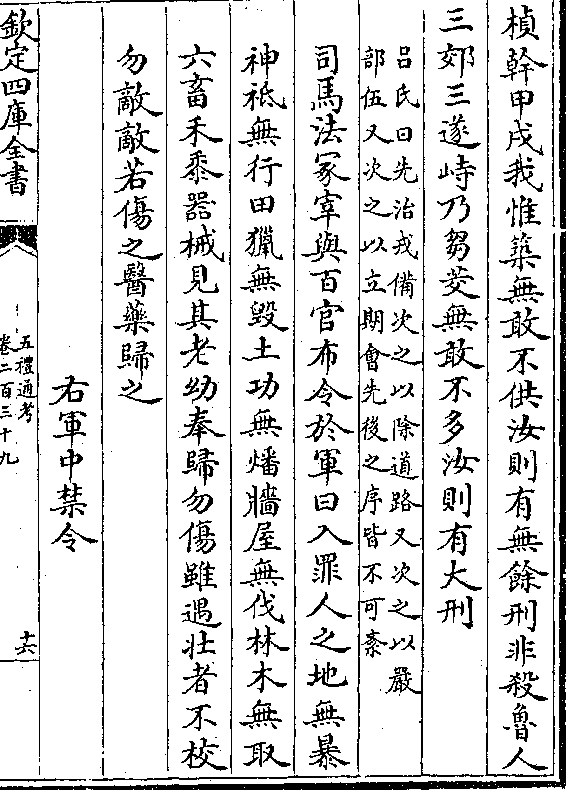 楨幹甲戌我惟築無敢不供汝則有無餘刑非殺魯人
三郊三遂峙乃芻茭無敢不多汝則有大刑
吕氏曰先治戎備次之以除道路又次之以嚴
部伍又次之以立期會先後之序皆不可紊
司馬法冡宰與百官布令於軍曰入罪人之地無暴
神祇無行田獵無毀土功無燔牆屋無伐林木無取
六畜禾黍器械見其老幼奉歸勿傷雖遇壯者不校
勿敵敵若傷之醫藥歸之
右軍中禁令
欽定四庫全書
五禮通考
卷二百三十九
十六